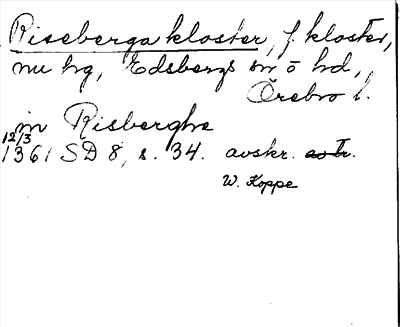 Riseberga kloster, f. kloster,
nu hg, Edsbergs sn o hd,
Örebro l.
in Risberghe
12/3
1361 SD 8, s. 34. avskr.
W. Koppe